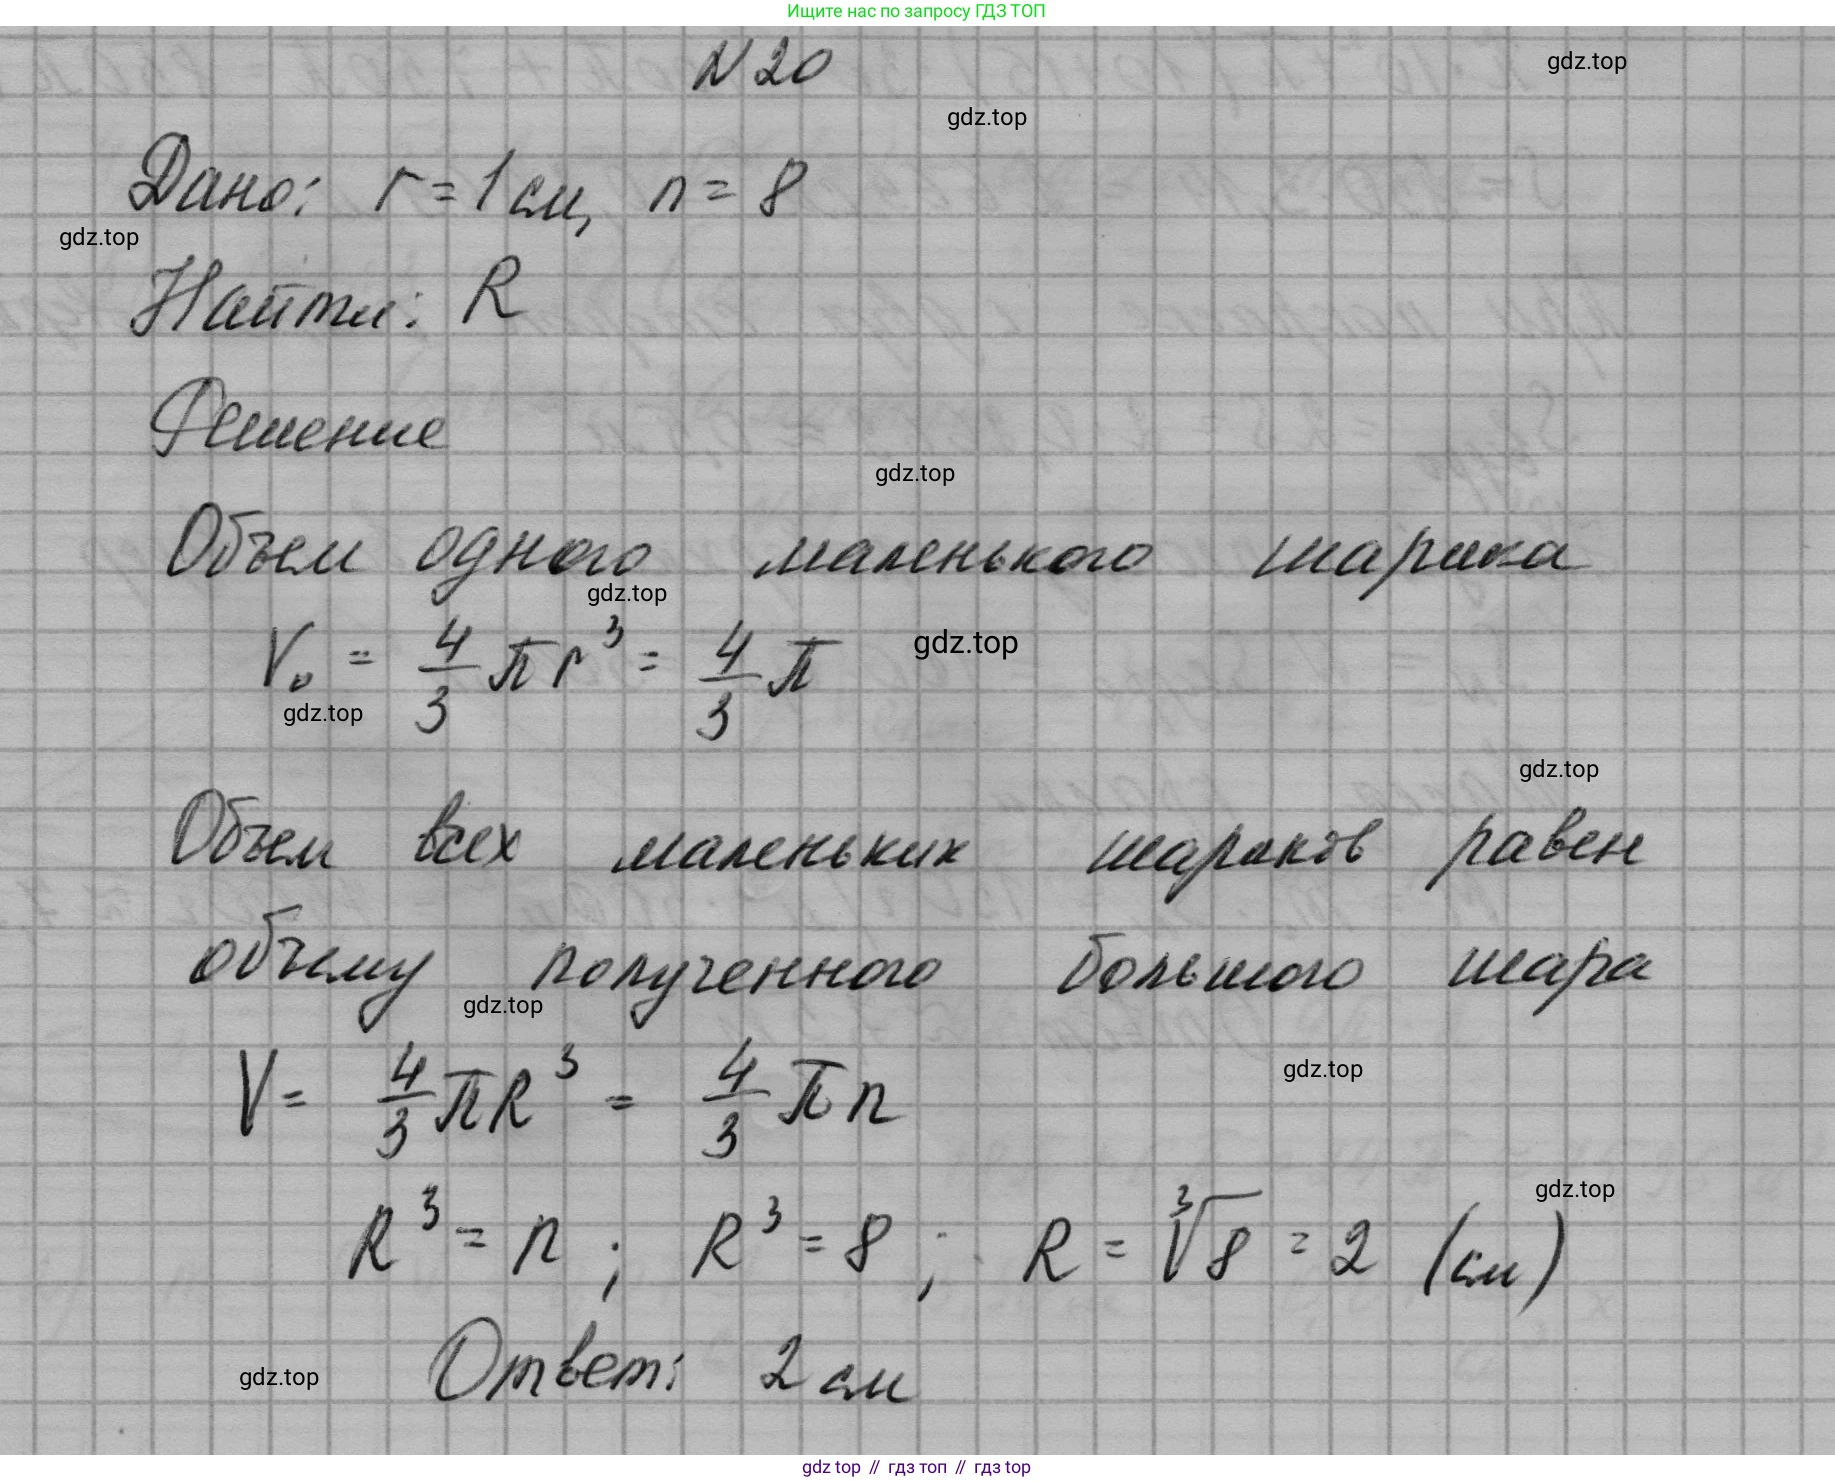 Ищите нас по запросу ГДЗ ТОП
N 20
gdz.top
gdz.top
Дано: r = 1 см, n = 8
gdz.top
Найти: R
Решение
gdz.top
Объем одного маленького шарика
gdz.top
V₀ = 4/3 π r³ = 4/3 π
gdz.top
gdz.top
gdz.top
Объем всех маленьких шариков равен
объему полученного большого шара
gdz.top
V = 4/3 π R³ = 4/3 π n
gdz.top
gdz.top
R³ = n ; R³ = 8 ; R = ³√8 = 2 (см)
Ответ: 2 см
gdz.top
gdz top // гдз топ // гдз top